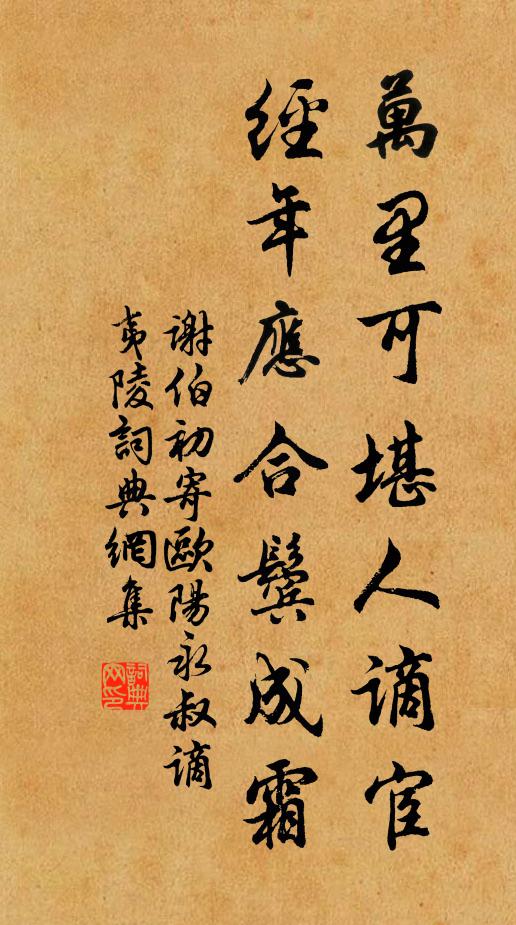 萬里可堪人謫宦
經年應合鬢成霜
謝伯初寄歐陽永叔謫
夷陵詞典網集
詞典网印